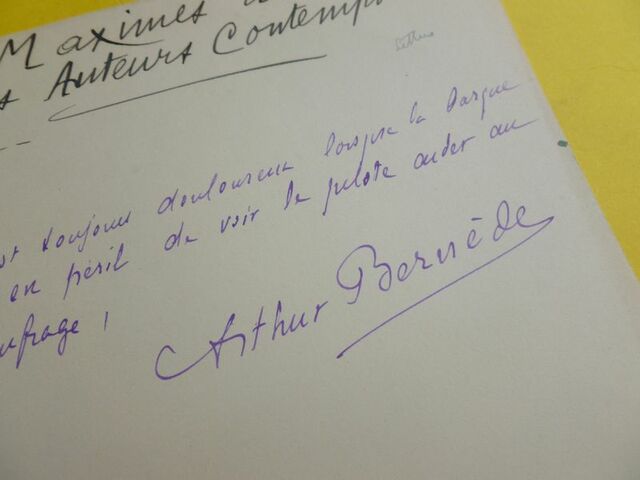 Maximes
Auteurs Contemp
st toujours douloureux lorsque la barque
en péril de voir le pilote aider au
ufrage !
Arthur Bernède